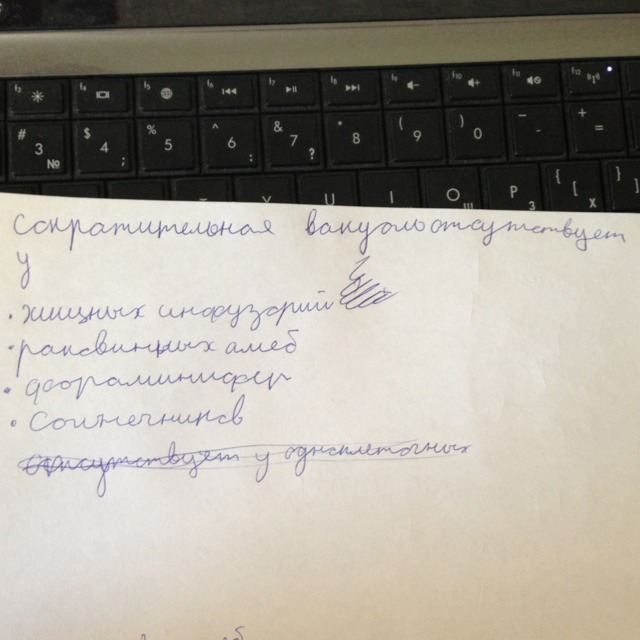 f3 f4 f5 f6 f7 f8 f9 f10 f11 f12
# 3 № $ 4 ; % 5 ^ 6 : & 7 ? * 8 ( 9 ) 0 _ - + =
U I O Щ P З { [ Х } ]
Сократительная вакуоль отсутствует
у
• хищных инфузорий
• раковинных амеб
• фораминифер
• Солнечников
отсутствует у одноклеточных